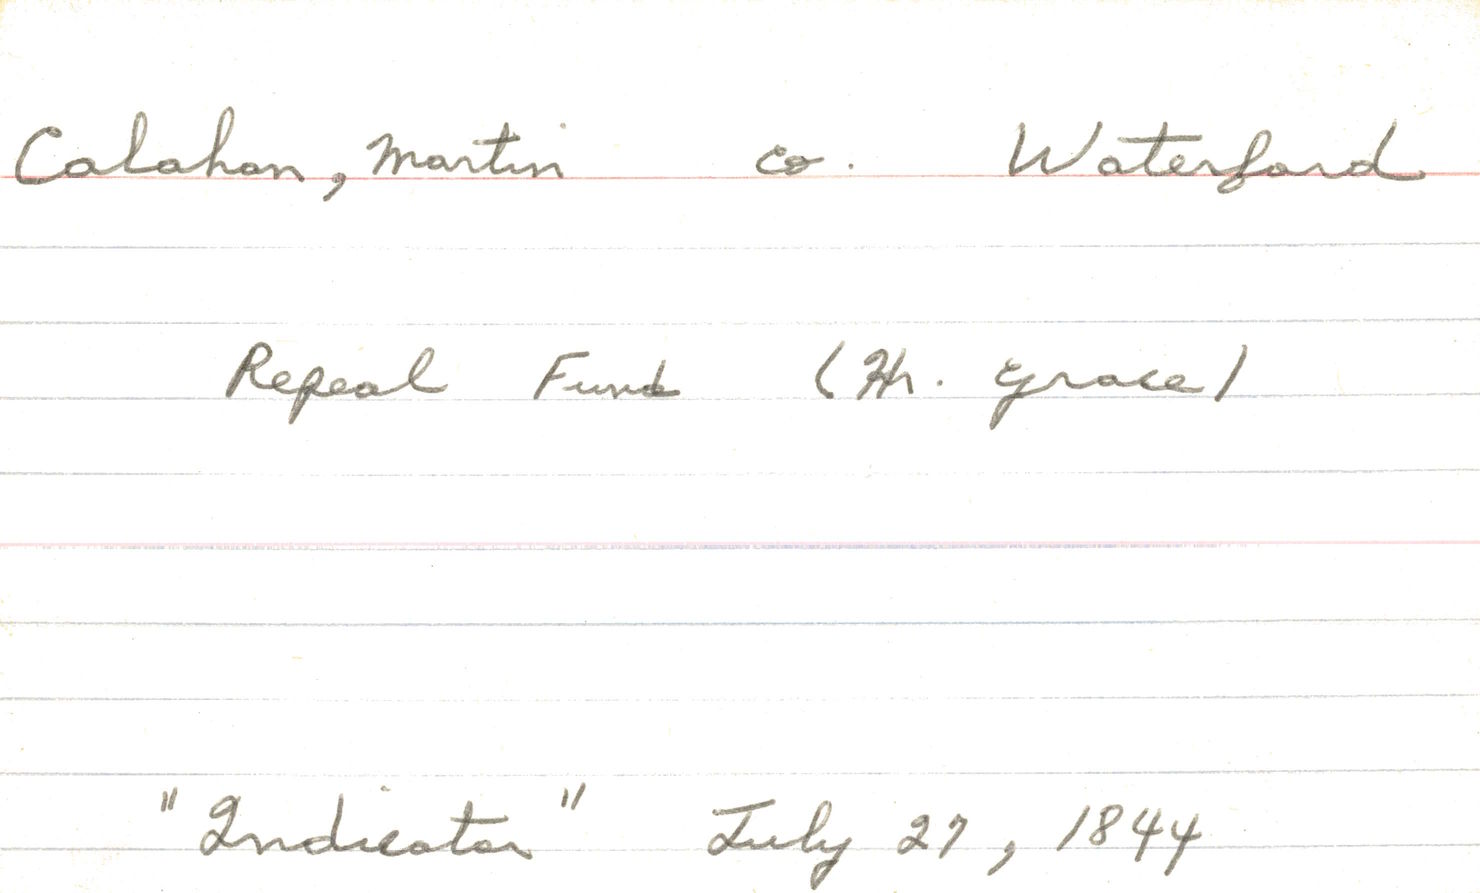 Calahan, Martin co. Waterford
Repeal Fund (Hr. Grace)
"Indicator" July 27, 1844